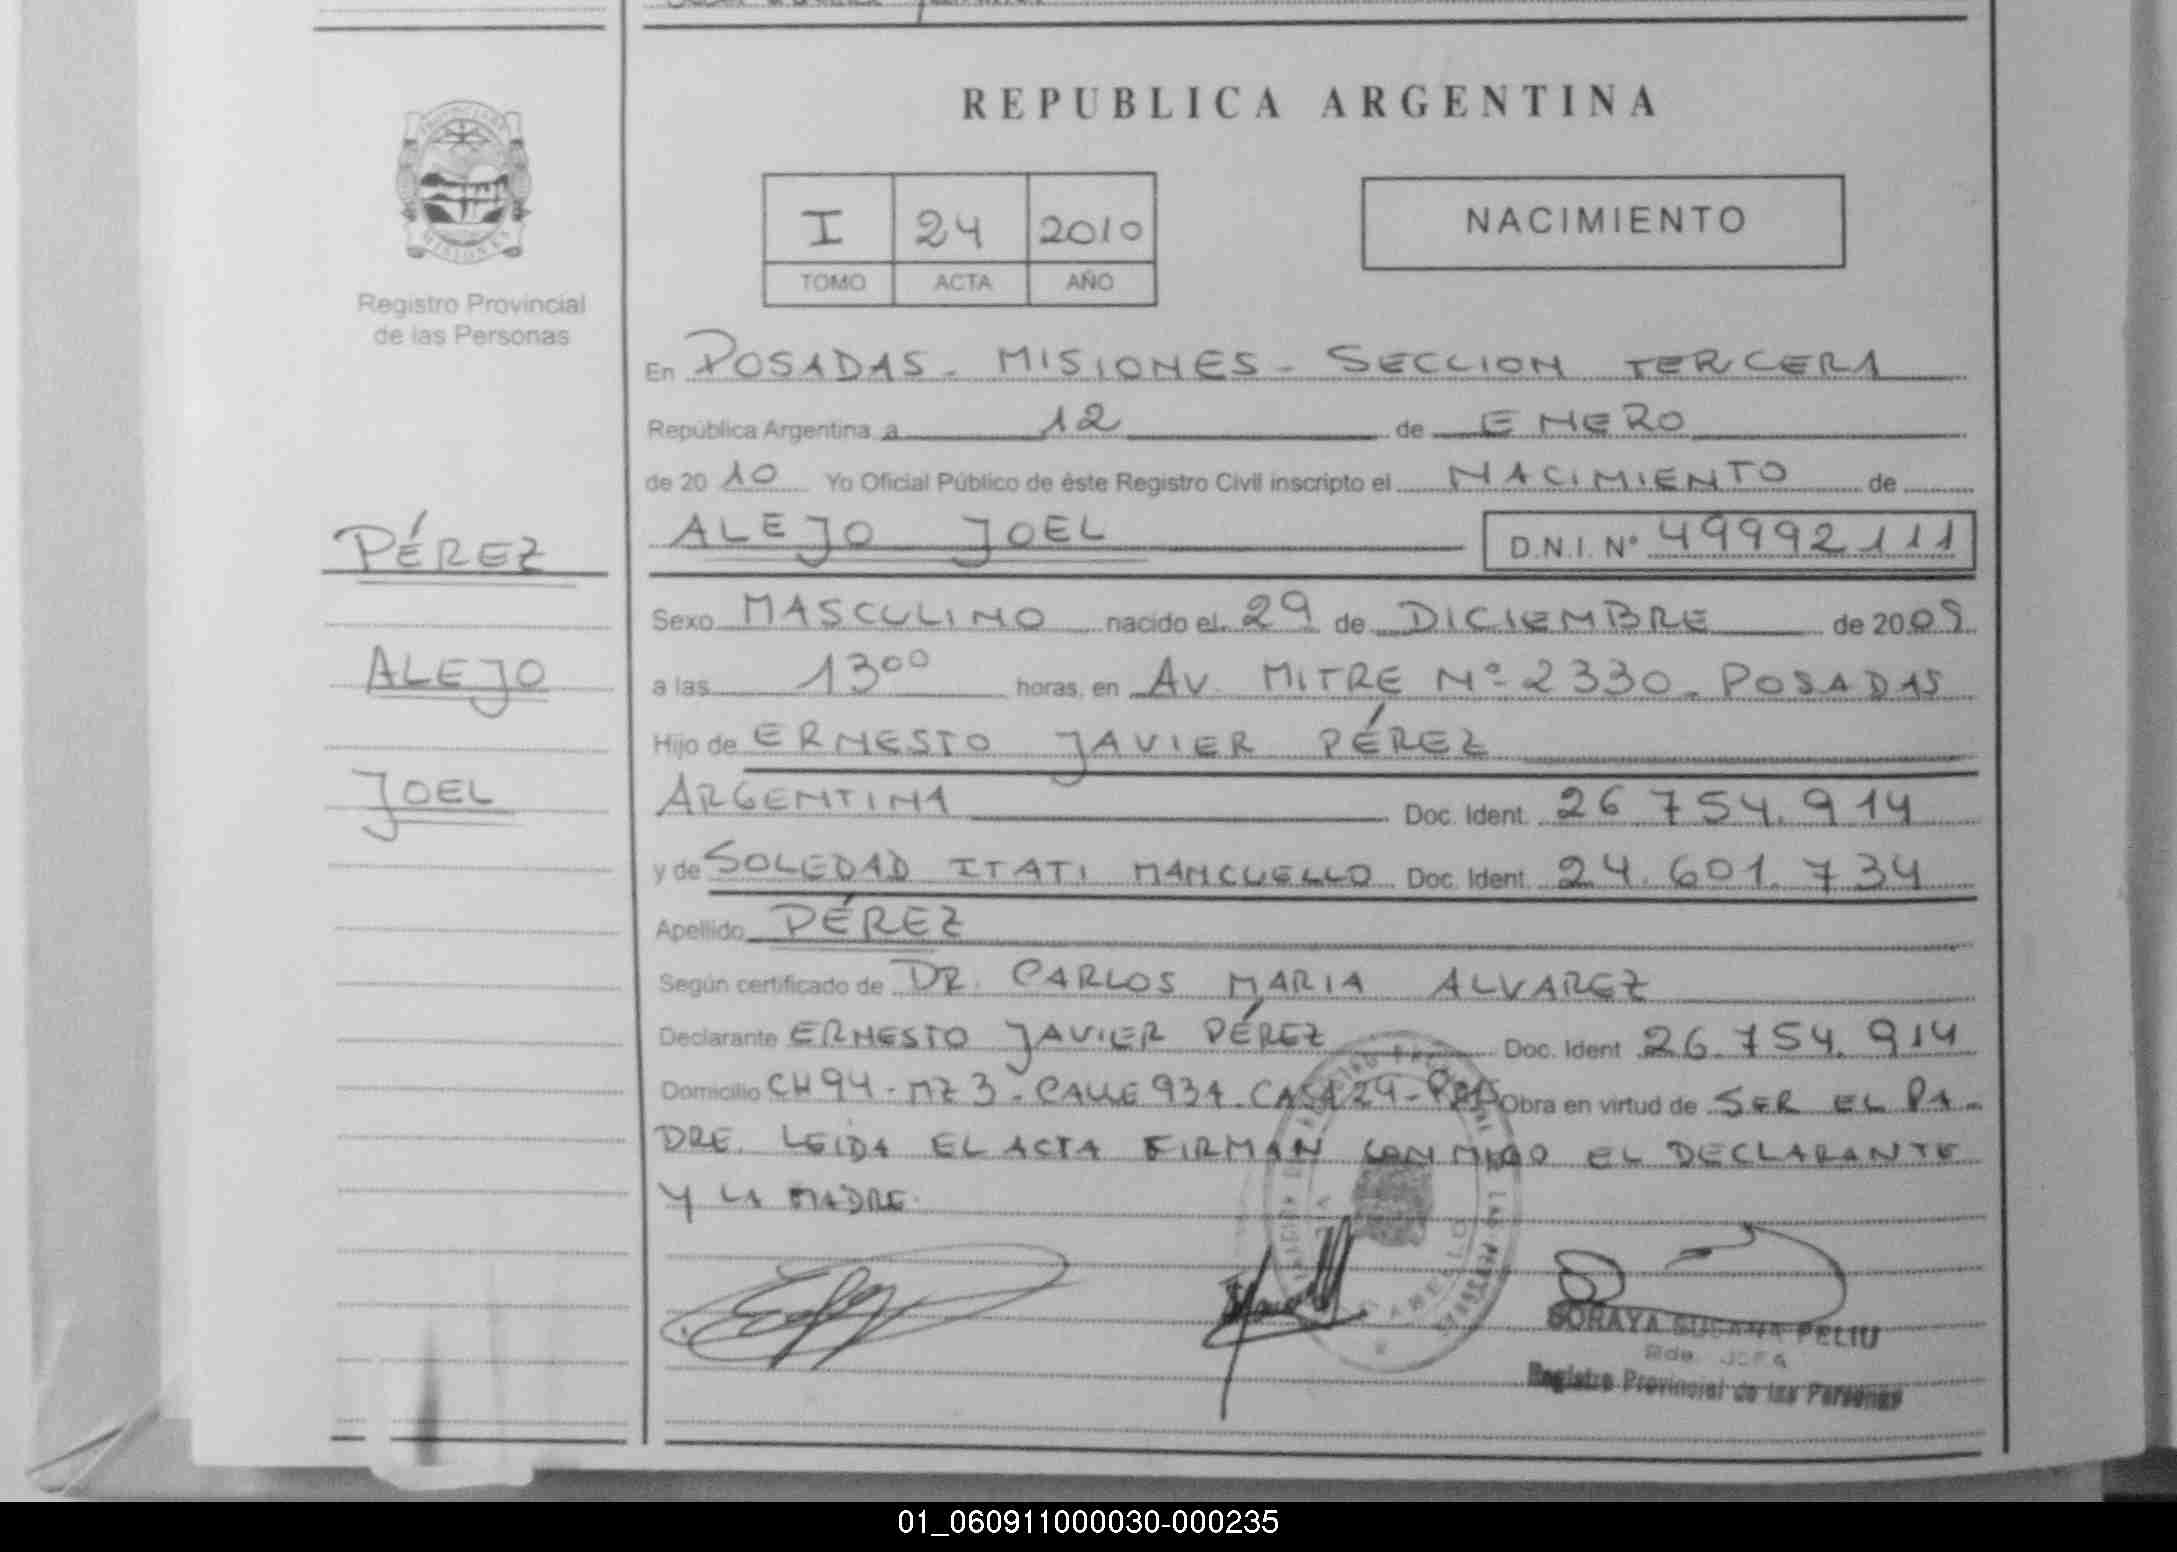 REPUBLICA ARGENTINA
PROVINCIA
MISIONES
Registro Provincial
de las Personas
I 24 2010
TOMO ACTA AÑO
NACIMIENTO
En POSADAS - MISIONES - SECCION TERCERA
República Argentina a 12 de ENERO
de 20 10 Yo Oficial Público de éste Registro Civil inscripto el NACIMIENTO de
PÉREZ
ALEJO
JOEL
ALEJO JOEL D.N.I. Nº 49992111
Sexo MASCULINO nacido el 29 de DICIEMBRE de 20 09
a las 13⁰⁰ horas, en AV. MITRE Nº 2330 - POSADAS
Hijo de ERNESTO JAVIER PÉREZ
ARGENTINA Doc. Ident. 26.754.914
y de SOLEDAD ITATI MANCUELLO Doc. Ident. 24.601.734
Apellido PÉREZ
Según certificado de DR. CARLOS MARIA ALVAREZ
Declarante ERNESTO JAVIER PÉREZ Doc. Ident 26.754.914
Domicilio CH 94 - MZ 3 - CALLE 937 - CASA 29 - Obra en virtud de SER EL PA-
DRE. LEIDA EL ACTA FIRMAN CONMIGO EL DECLARANTE
Y LA MADRE.
SORAYA SUSANA PELIU
Registro Provincial de las Personas
01_060911000030-000235